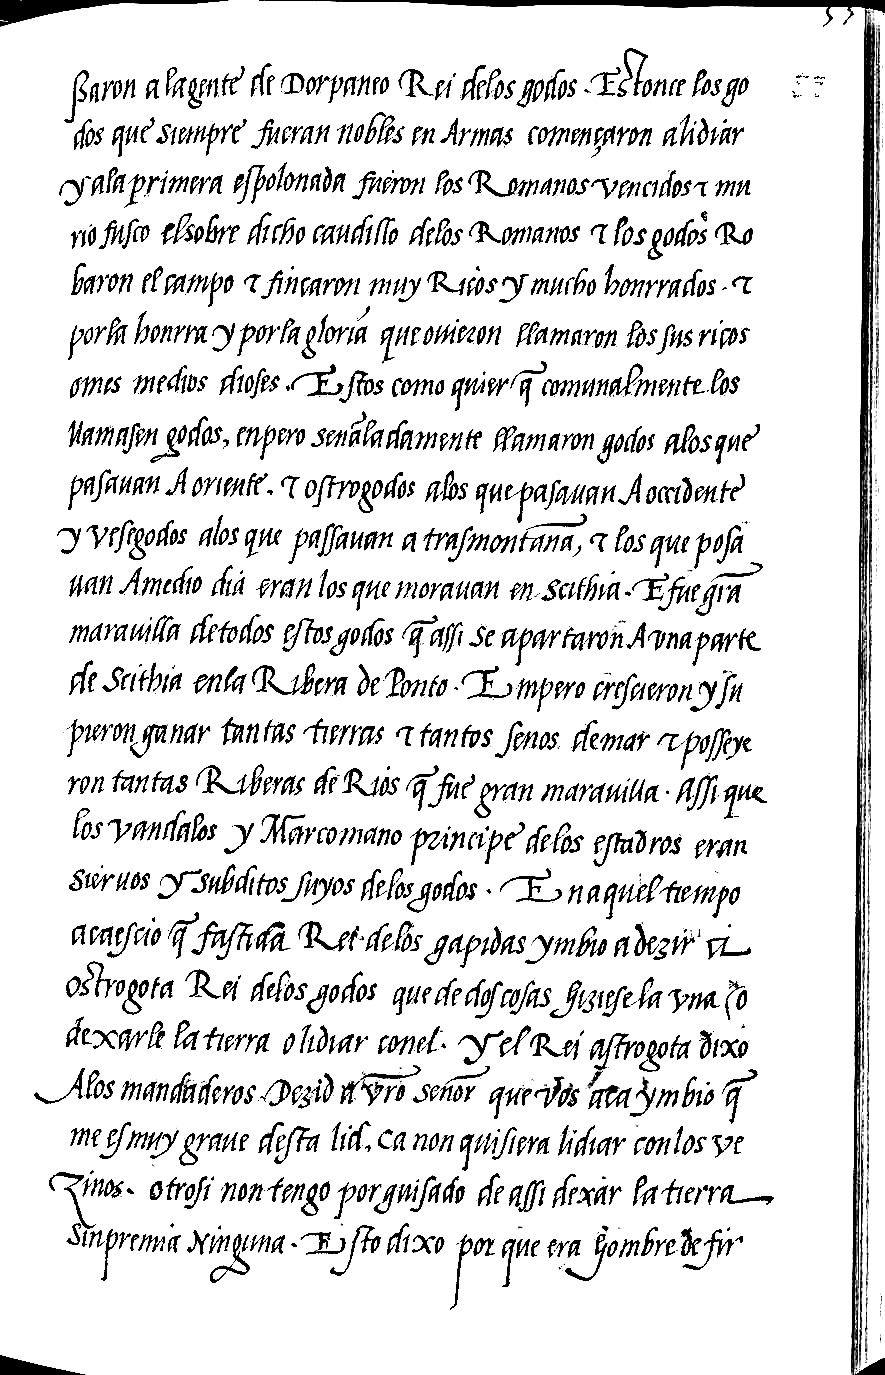 55
ssaron a la gente de Dorpaneo Rei delos godos. Estonce los go
dos que siempre fueran nobles en Armas començaron a lidiar
y ala primera espolonada fueron los Romanos vencidos τ mu
rio fusco el sobre dicho caudillo delos Romanos τ los godos Ro
baron el campo τ fincaron muy Ricos y mucho honrrados. τ
por la honrra y por la gloria que ouieron llamaron los sus ricos
omes medios dioses. Estos como quier q̃ comunalmente los
llamasen godos, enpero señaladamente llamaron godos alos que
pasauan A oriente. τ ostrogodos alos que pasauan A occidente
y vesegodos alos que passauan a trasmontana, τ los que posa
uan Amedio dia eran los que morauan en Scithia. E fue grã
marauilla de todos estos godos q̃ assi se apartaron A vna parte
de Scithia en la Ribera de Ponto. Empero crescieron y su
pieron ganar tantas tierras τ tantos senos de mar τ posseye
ron tantas Riberas de Rios q̃ fue gran marauilla. Assi que
los vandalos y Marcomano principe delos estadros eran
sieruos y subditos suyos delos godos. En aquel tiempo
acaescio q̃ fastida Rei delos gapidas ymbio a dezir a
Ostrogota Rei delos godos que de dos cosas hiziese la vna o
dexarle la tierra o lidiar con el. Y el Rei astrogota dixo
Alos mandaderos. Dezid a vr̃o señor que vos aca ymbio q̃
me es muy graue desta lid, ca non quisiera lidiar con los ve
zinos. otrosi non tengo por guisado de assi dexar la tierra
sin premia Ninguna. Esto dixo por que era hombre de fir